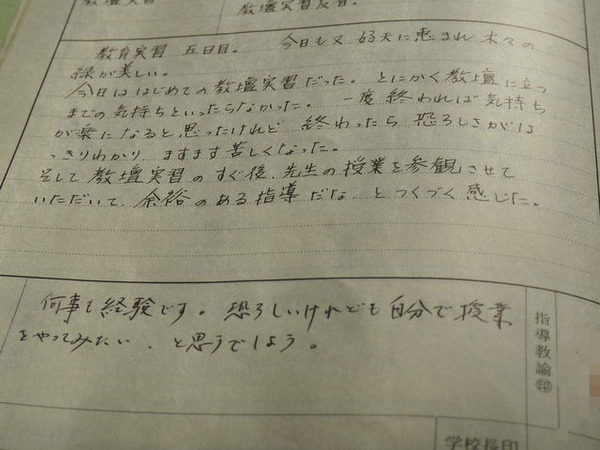 教壇実習
教壇実習反省。
教育実習 五日目。 今日も又 好天に恵まれ 木々の
緑が美しい。
今日ははじめての教壇実習だった。とにかく教壇に立つ
までの気持ちといったらなかった。一度終われば気持ち
が楽になると思ったけれど 終わったら 恐ろしさがは
っきりわかり ますます苦しくなった。
そして 教壇実習のすぐ後、先生の授業を参観させて
いただいて、余裕のある指導だな…とつくづく感じた。
何事も経験です。恐ろしいけれども自分で授業
をやってみたい、と思うでしょう。
指導教諭㊞
学校長印